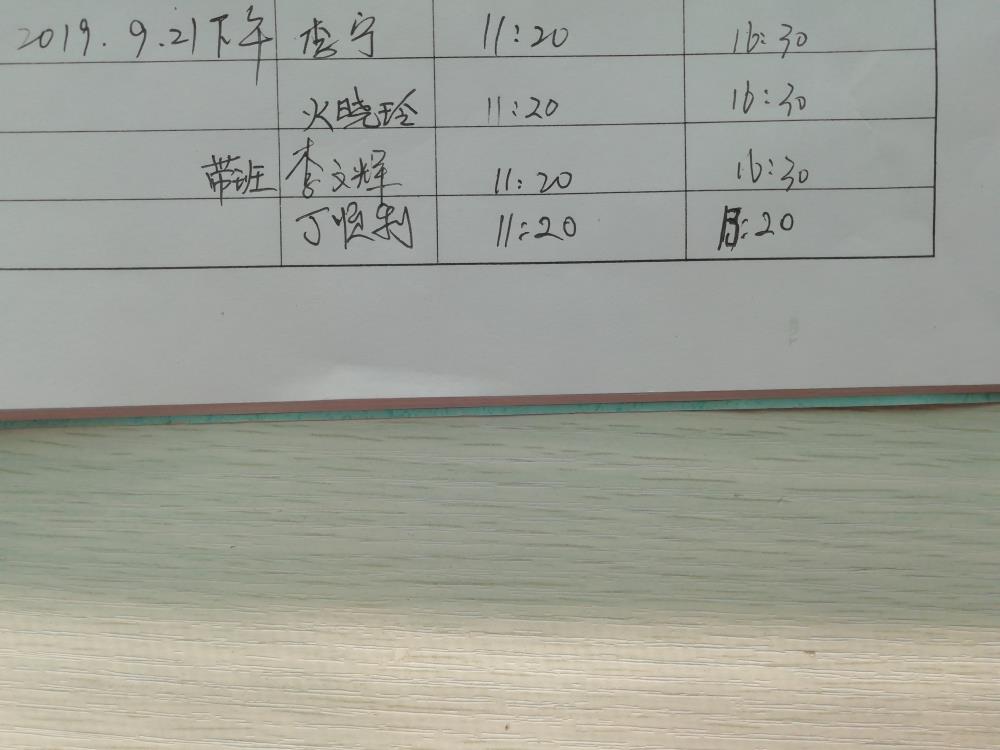 2019.9.21下午 李宁 11:20 16:30
火晓玲 11:20 16:30
带班 李文辉 11:20 16:30
丁顺利 11:20 :20